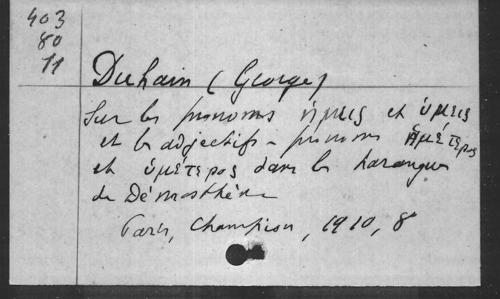 403
80
11
Duhain (George)
Sur les pronoms ἡμεῖς et ὑμεῖς
et les adjectifs-pronoms ἡμέτερος
et ὑμέτερος dans les harangues
de Démosthène
Paris, Champion, 1910, 8°